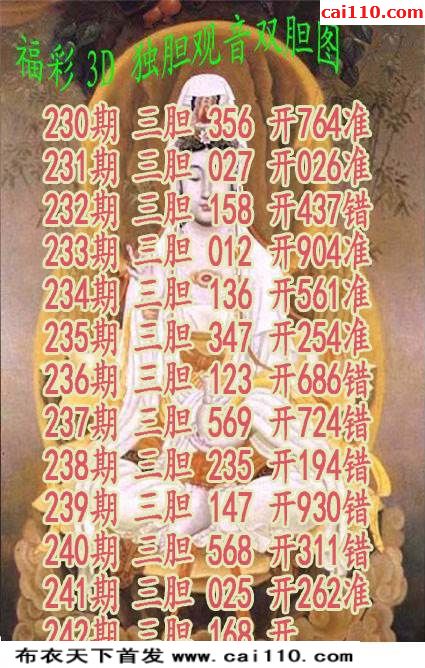 cai110.com
福彩 3D 独胆观音双胆图
230期 三胆 356 开764准
231期 三胆 027 开026准
232期 三胆 158 开437错
233期 三胆 012 开904准
234期 三胆 136 开561准
235期 三胆 347 开254准
236期 三胆 123 开686错
237期 三胆 569 开724错
238期 三胆 235 开194错
239期 三胆 147 开930错
240期 三胆 568 开311错
241期 三胆 025 开262准
242期 三胆 168 开
布衣天下首发 www.cai110.com